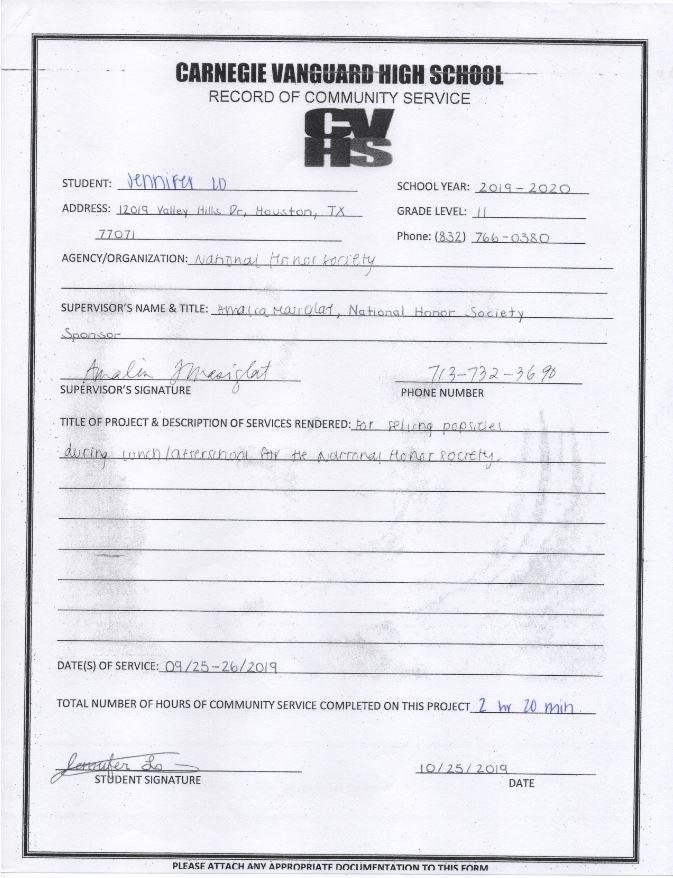 CARNEGIE VANGUARD HIGH SCHOOL
RECORD OF COMMUNITY SERVICE
CV
HS
STUDENT: Jennifer Lo
SCHOOL YEAR: 2019-2020
ADDRESS: 12019 Valley Hills Dr, Houston, TX
GRADE LEVEL: 11
77071
Phone: (832) 766-0380
AGENCY/ORGANIZATION: National Honor Society
SUPERVISOR'S NAME & TITLE: Amalia, National Honor Society
Sponsor
Amalia
713-732-3690
SUPERVISOR'S SIGNATURE
PHONE NUMBER
TITLE OF PROJECT & DESCRIPTION OF SERVICES RENDERED: For selling popsicles
during lunch/afterschool for the National Honor Society.
DATE(S) OF SERVICE: 09/25-26/2019
TOTAL NUMBER OF HOURS OF COMMUNITY SERVICE COMPLETED ON THIS PROJECT 2 hr 20 min
Jennifer Lo
10/25/2019
STUDENT SIGNATURE
DATE
PLEASE ATTACH ANY APPROPRIATE DOCUMENTATION TO THIS FORM